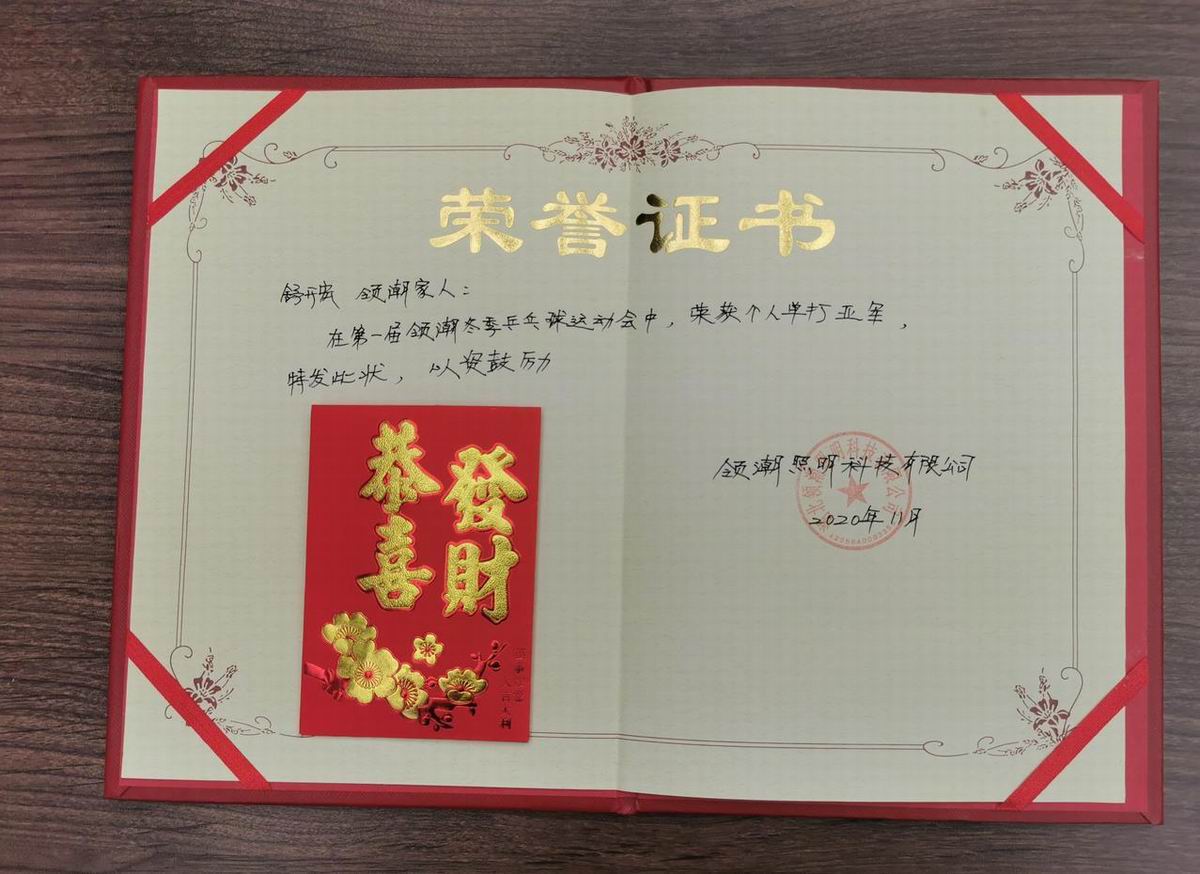 荣誉证书
舒开宏 领潮家人：
在第一届领潮冬季乒乓球运动会中，荣获个人单打亚军，
特发此状，以资鼓励
恭喜
發財
领潮照明科技有限公司
2020年11月